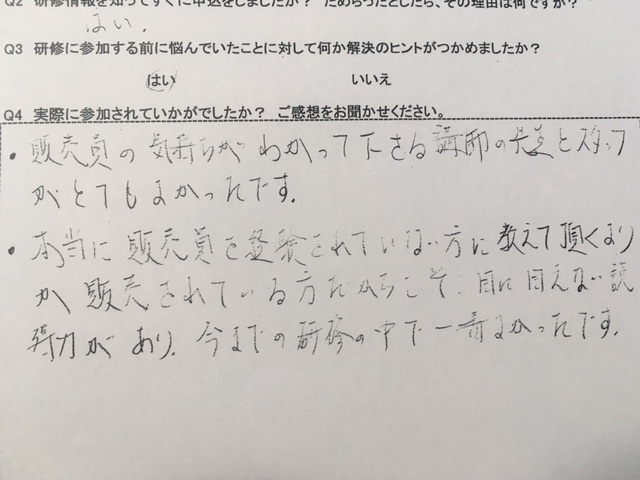 Q2 研修情報を知ってすぐに申込をしましたか？ ためらったとしたら、その理由は何ですか？
はい.
Q3 研修に参加する前に悩んでいたことに対して何か解決のヒントがつかめましたか？
はい いいえ
Q4 実際に参加されていかがでしたか？ ご感想をお聞かせください。
• 販売員の気持ちがわかって下さる講師の先生とスタッフ
がとてもよかったです.
• 本当に販売員を経験されていない方に教えて頂くより
か販売されている方だからこそ、目に見えない説
得力があり. 今までの研修の中で一番よかったです.